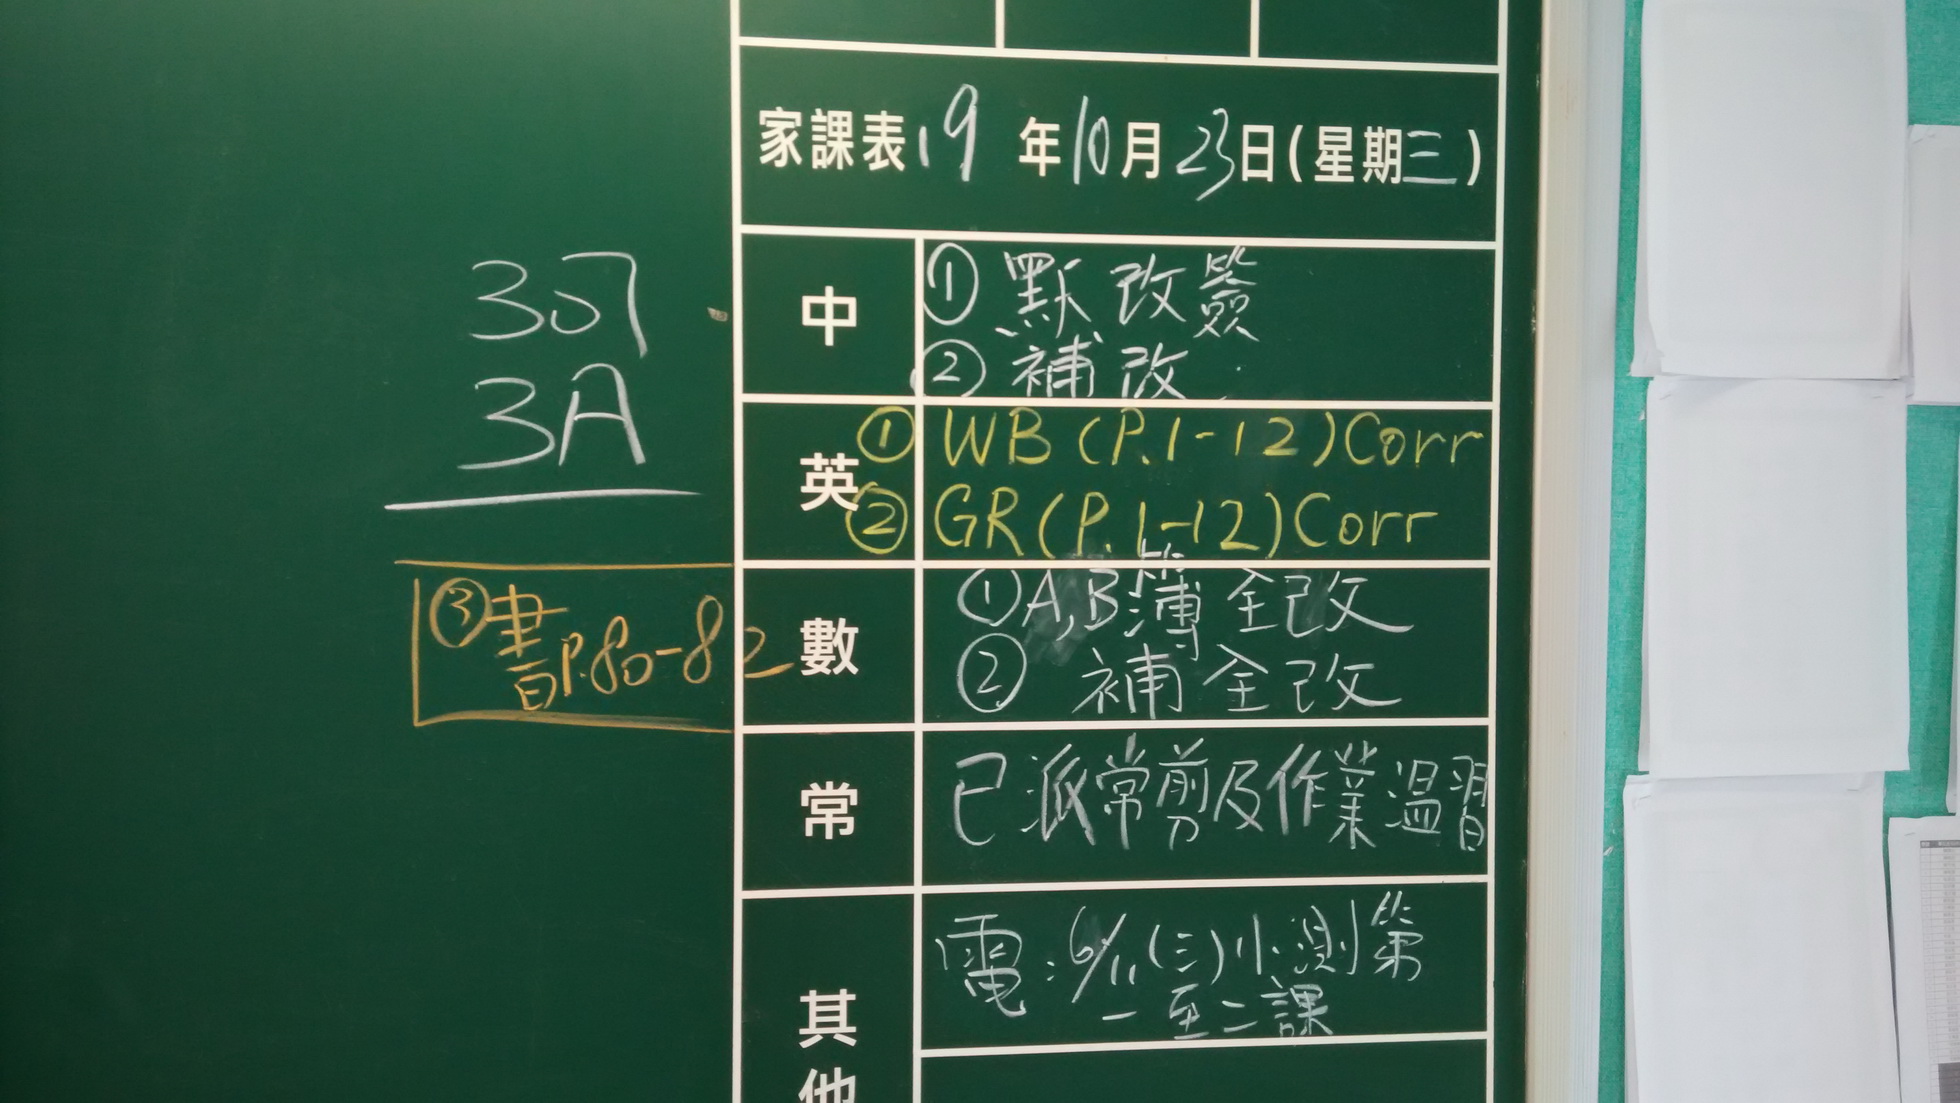 家課表 19 年 10 月 23 日 (星期三)
307
3A
中
① 默改簽
② 補改
英
① WB (P.1-12) Corr
② GR (P.1-12) Corr
數
① A,B簿全改
② 補全改
③ 書P.80-82
常
已派常剪及作業溫習
其他
電：6/11 (三) 小測第
一至二課